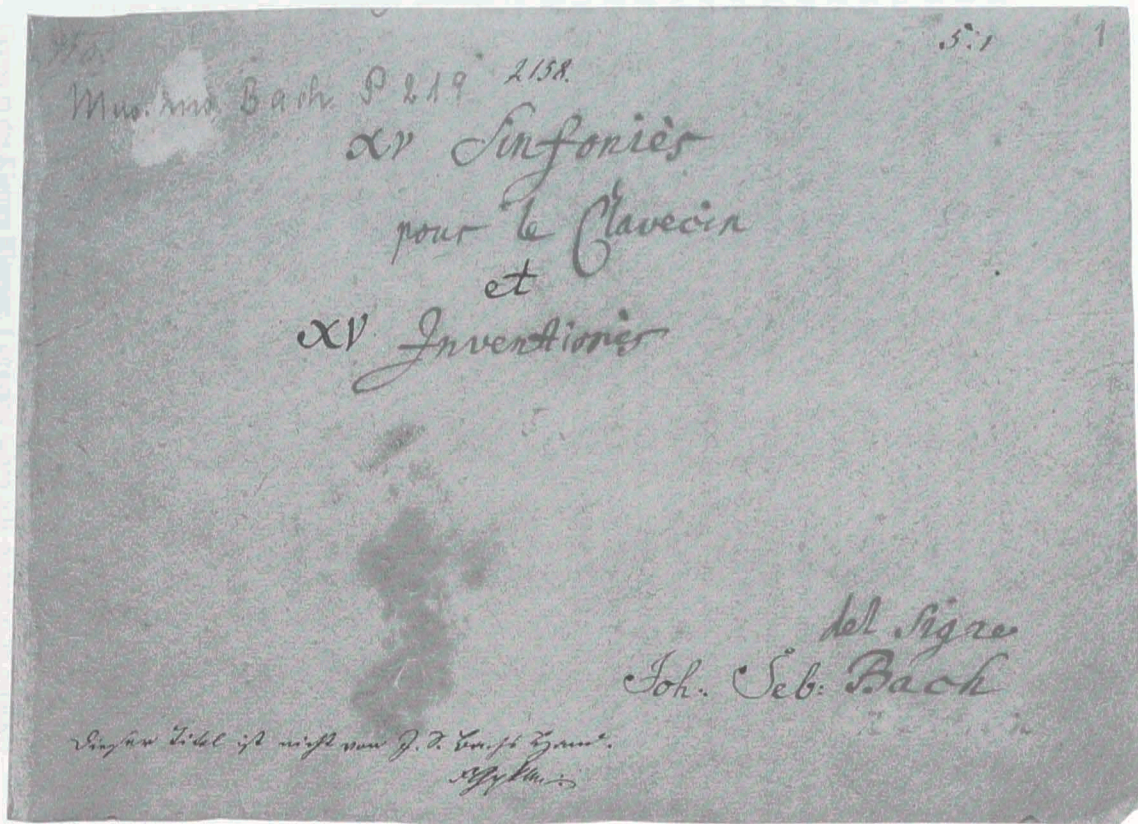 5.1
1
2158.
Mus. ms. Bach P 219
XV Sinfoniès
pour le Clavecin
et
XV Inventionès
del Sigre
Joh. Seb: Bach
Dieser Titel ist nicht von J. S. Bachs Hand.